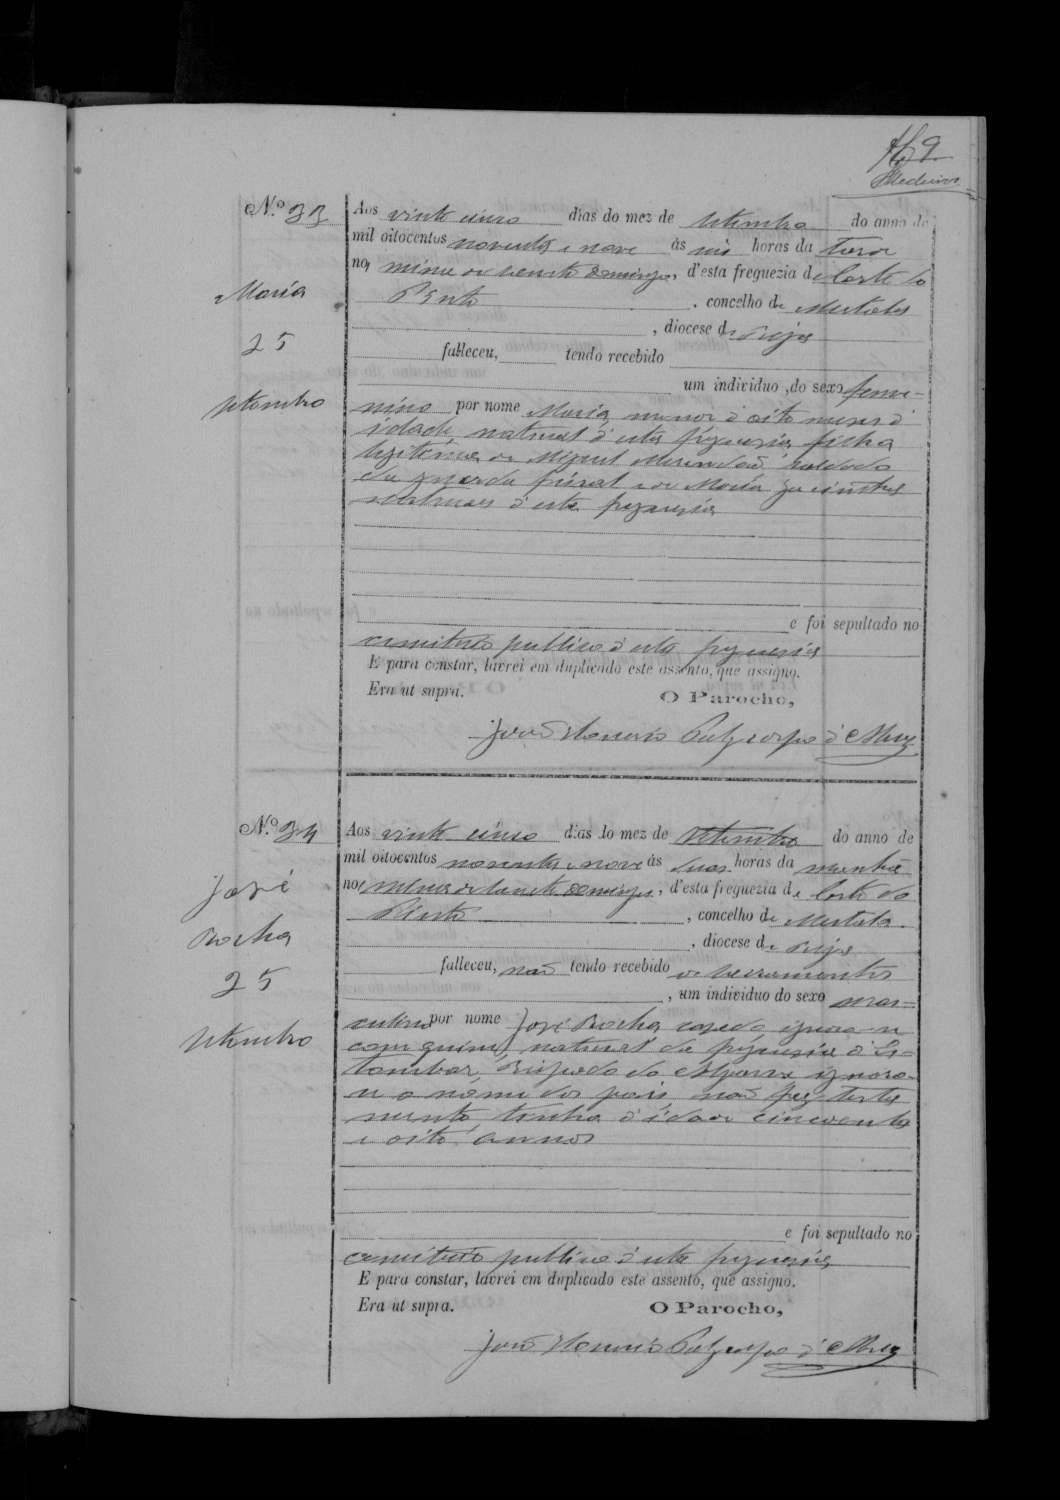 169
Medeiros
N.º 33
Aos vinte cinco dias do mez de Setembro do anno de
mil oitocentos noventa e nove ás seis horas da tarde
na mina de San Domingos, d'esta freguezia de Corte do
Pinto, concelho de Mertola
, diocese de Beja
Maria
25
Setembro
falleceu, tendo recebido
um individuo do sexo femi-
nino por nome Maria, menor d'oito mezes d'
idade, natural d'esta freguezia, filha
legitima de Miguel soldado
da guarda fiscal e de Maria Jacintha
naturaes d'esta freguezia
e foi sepultado no
cemiterio publico d'esta freguezia
E para constar, lavrei em duplicado este assento, que assigno.
Era ut supra.
O Parocho,
João
N.º 34
Aos vinte cinco dias do mez de Setembro do anno de
mil oitocentos noventa e nove ás duas horas da manhã
na mina de San Domingos, d'esta freguezia de Corte do
Pinto, concelho de Mertola.
, diocese de Beja
José
Rocha
25
Setembro
falleceu, não tendo recebido os sacramentos
, um individuo do sexo mas-
culino por nome José Rocha, casado, ignora-se
com quem, natural da freguezia d'Es-
tombar, Bispado do Algarve, ignora-
se o nome dos paes, não fez testa
mento, tinha d'idade cincoenta
e oito annos
e foi sepultado no
cemiterio publico d'esta freguezia
E para constar, lavrei em duplicado este assento, que assigno.
Era ut supra.
O Parocho,
João